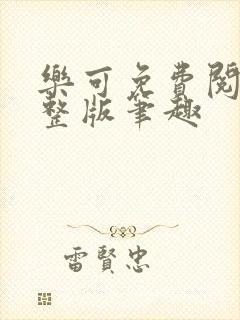 樂可免費閱
整版筆趣
雷賢忠